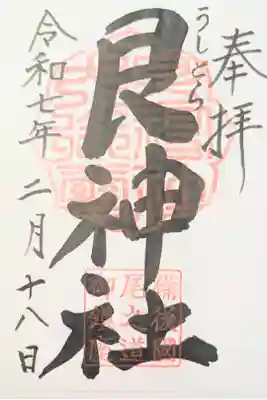 奉拝
うしとら
艮神社
令和七年 二月十八日
備後國
尾道